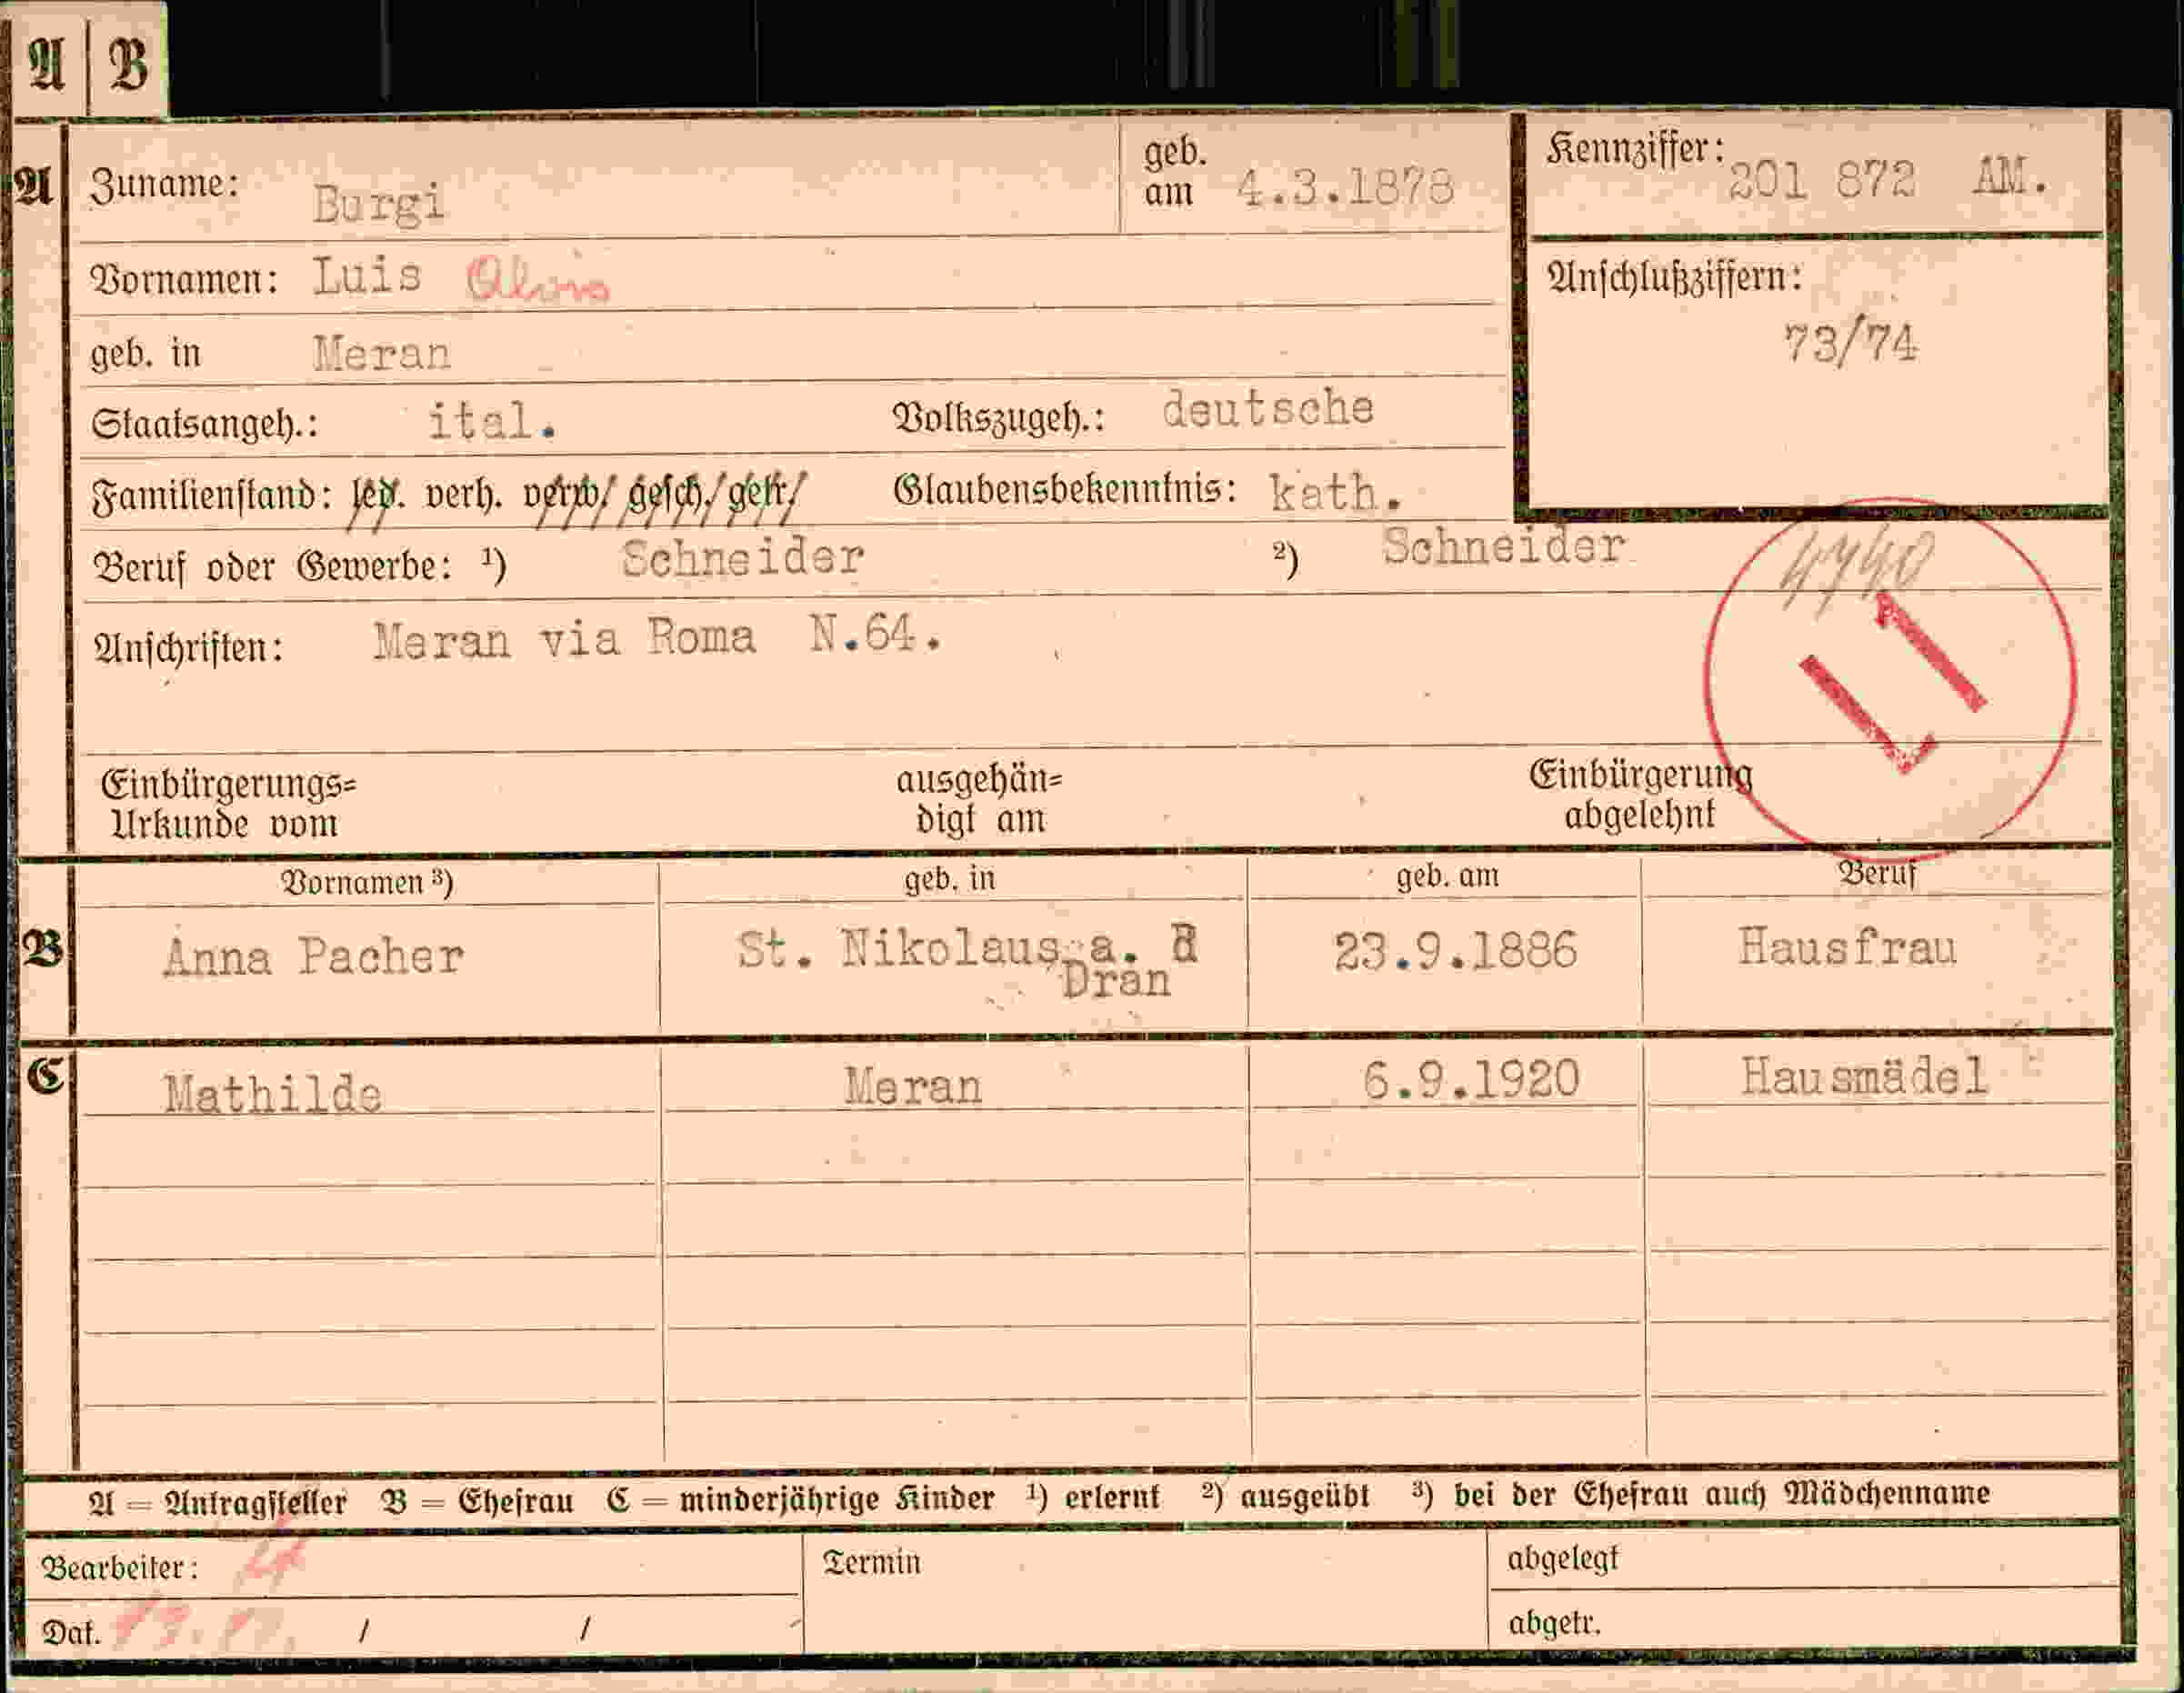 A | B
A Zuname: Burgi geb. am 4.3.1878 Kennziffer: 201 872 AM.
Vornamen: Luis Alois Anschlußziffern:
geb. in Meran 73/74
Staatsangeh.: ital. Volkszugeh.: deutsche
Familienstand: led. verh. verw. gesch. getr. Glaubensbekenntnis: kath.
Beruf oder Gewerbe: ¹) Schneider ²) Schneider
Anschriften: Meran via Roma N.64.
Einbürgerungs= ausgehän= Einbürgerung
Urkunde vom digt am abgelehnt
Vornamen ³) geb. in geb. am Beruf
B Anna Pacher St. Nikolaus a. d 23.9.1886 Hausfrau
Dran
C Mathilde Meran 6.9.1920 Hausmädel
A = Antragsteller B = Ehefrau C = minderjährige Kinder ¹) erlernt ²) ausgeübt ³) bei der Ehefrau auch Mädchenname
Bearbeiter: Termin abgelegt
Dat. / / abgetr.